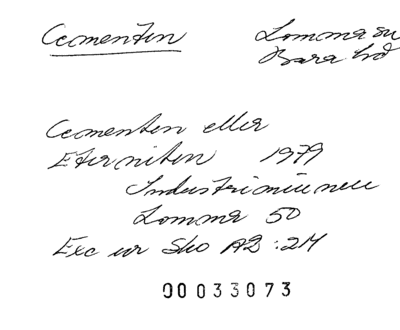 Cementen
Lomma sn
Bara hd
Cementen eller
Eterniten 1979
Industriminnen
Lomma 50
Exc ur Sko AB:2M
00033073